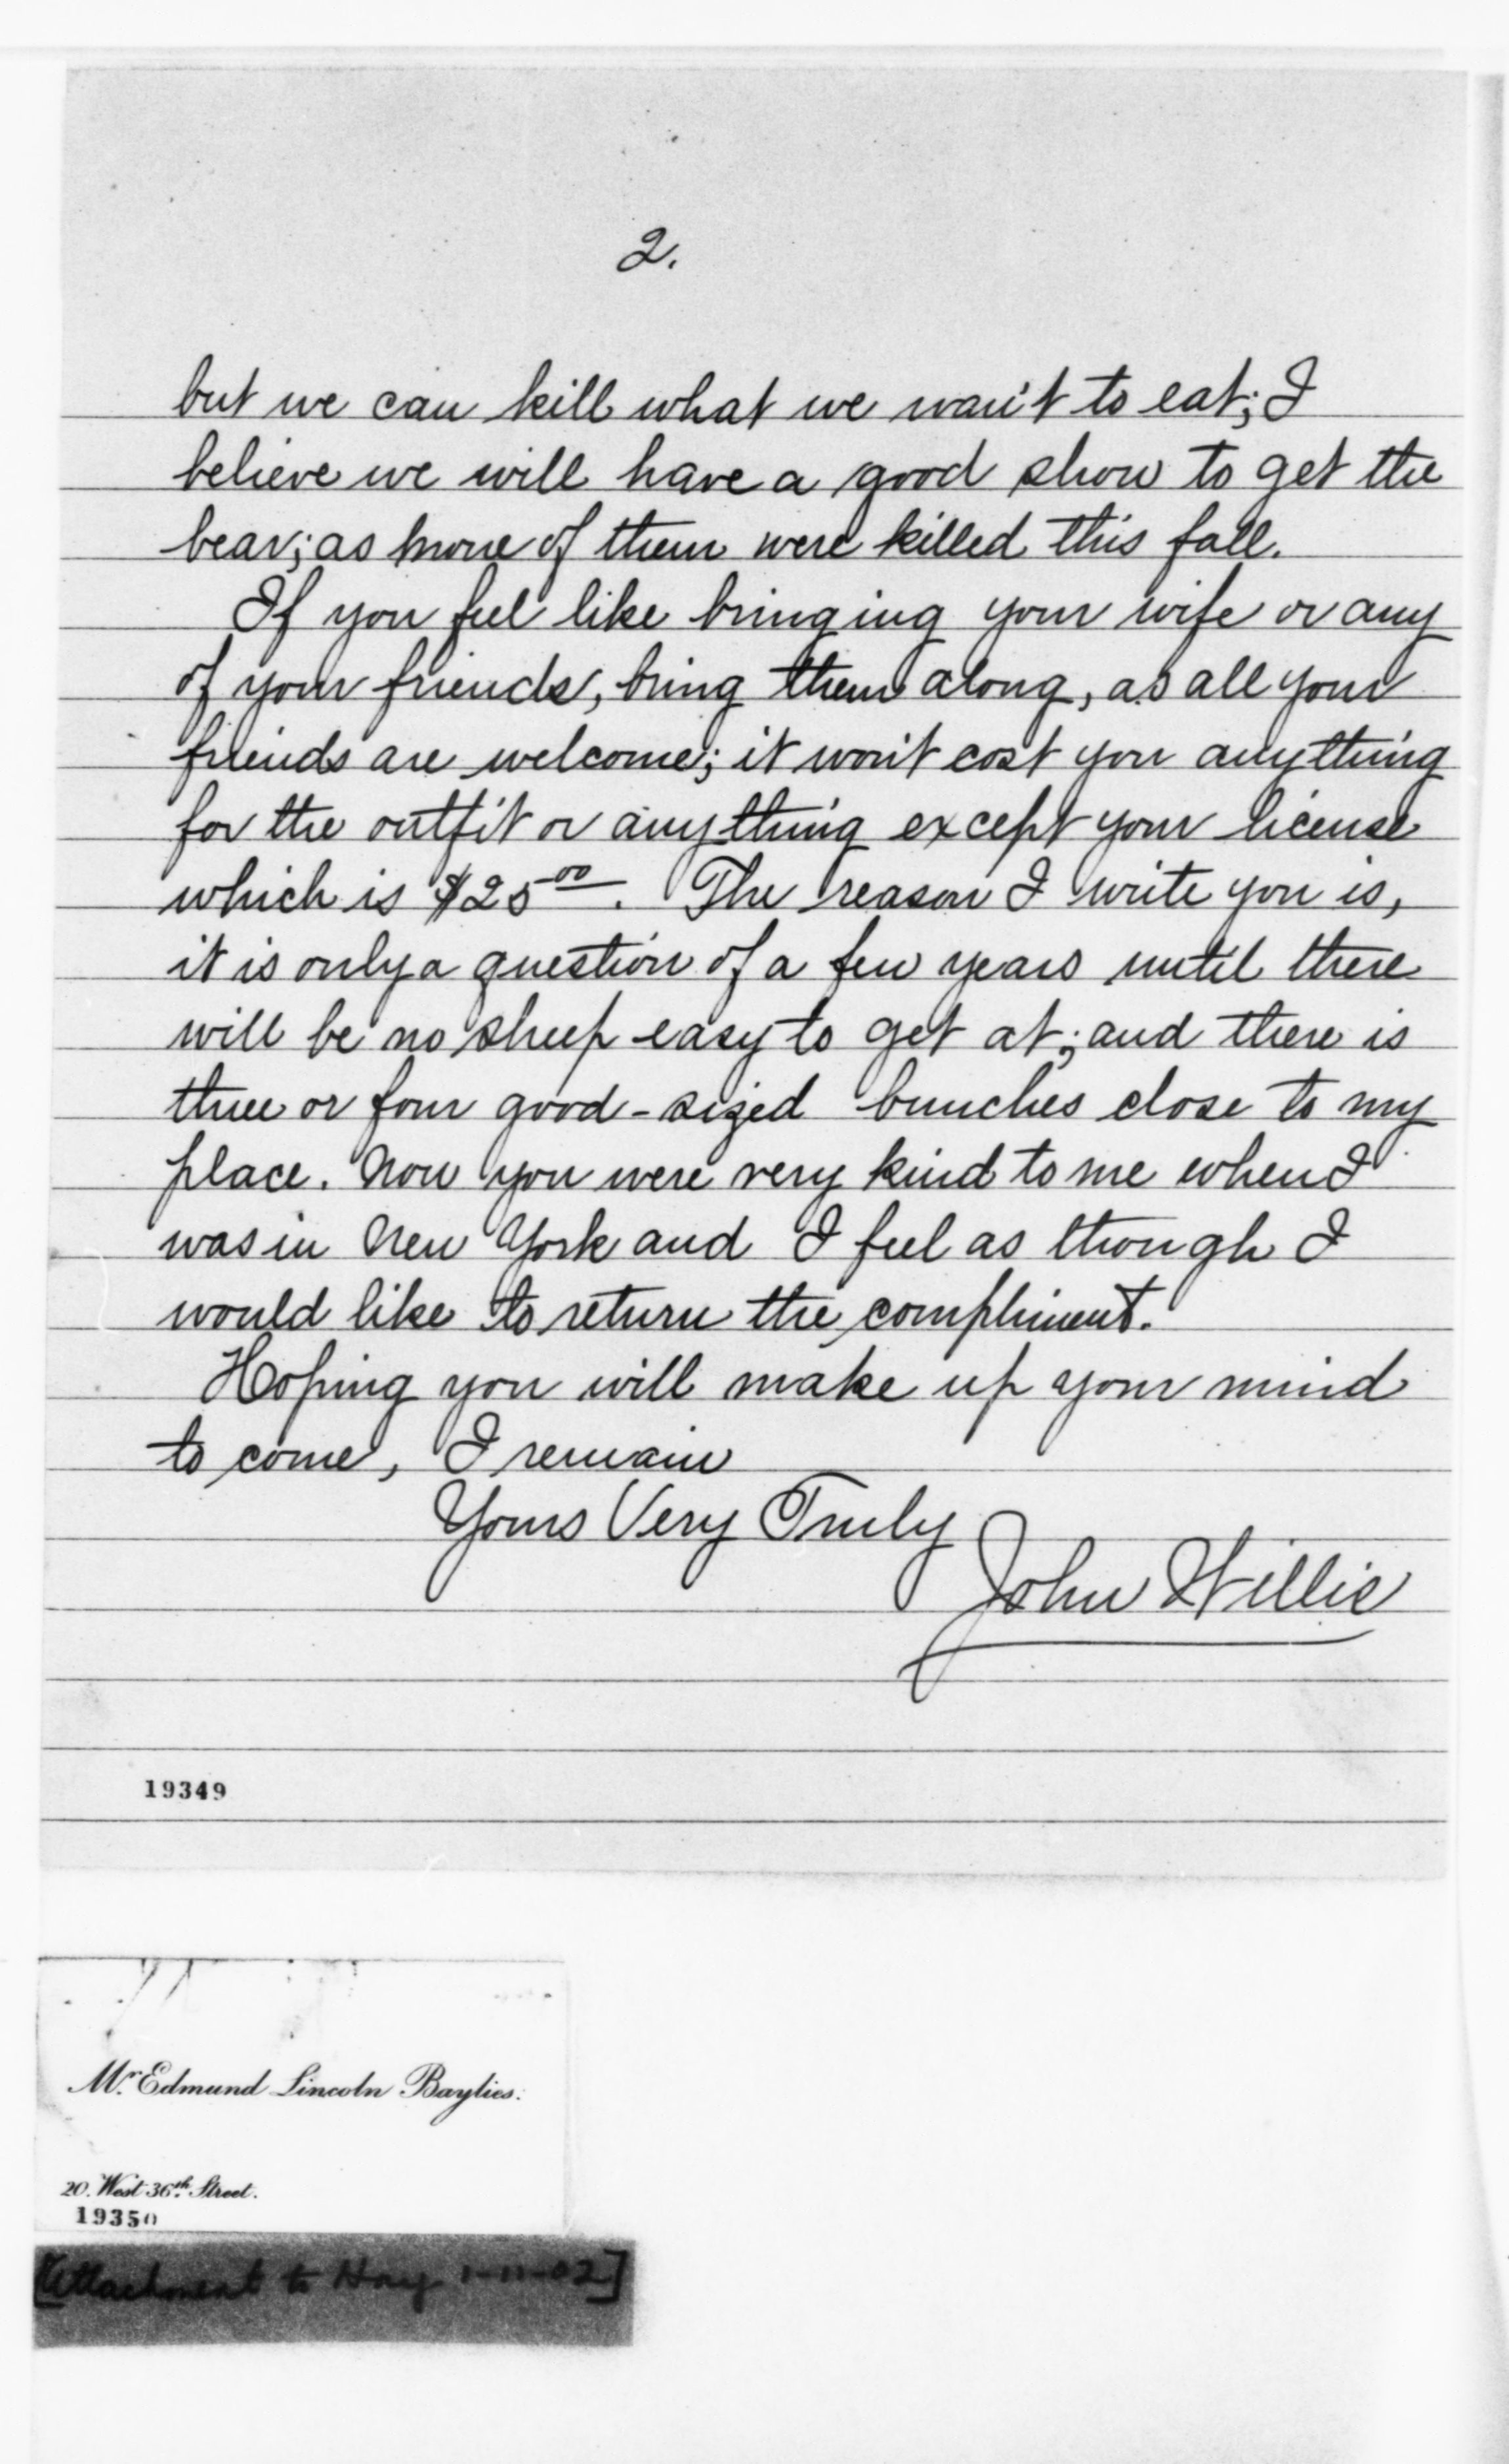 2.
but we can kill what we wan't to eat; I
believe we will have a good show to get the
bear; as none of them were killed this fall.
If you feel like bringing your wife or any
of your friends, bring them along, as all your
friends are welcome; it won't cost you anything
for the outfit or anything except your license
which is $25.00. The reason I write you is,
it is only a question of a few years until there
will be no sheep easy to get at; and there is
three or four good-sized bunches close to my
place. Now you were very kind to me when I
was in New York and I feel as though I
would like to return the compliment.
Hoping you will make up your mind
to come, I remain
Yours Very Truly
John Willis
19349
Mr. Edmund Lincoln Baylies.
20. West 36th Street.
19350
[Attachment to Hay 1-11-02]